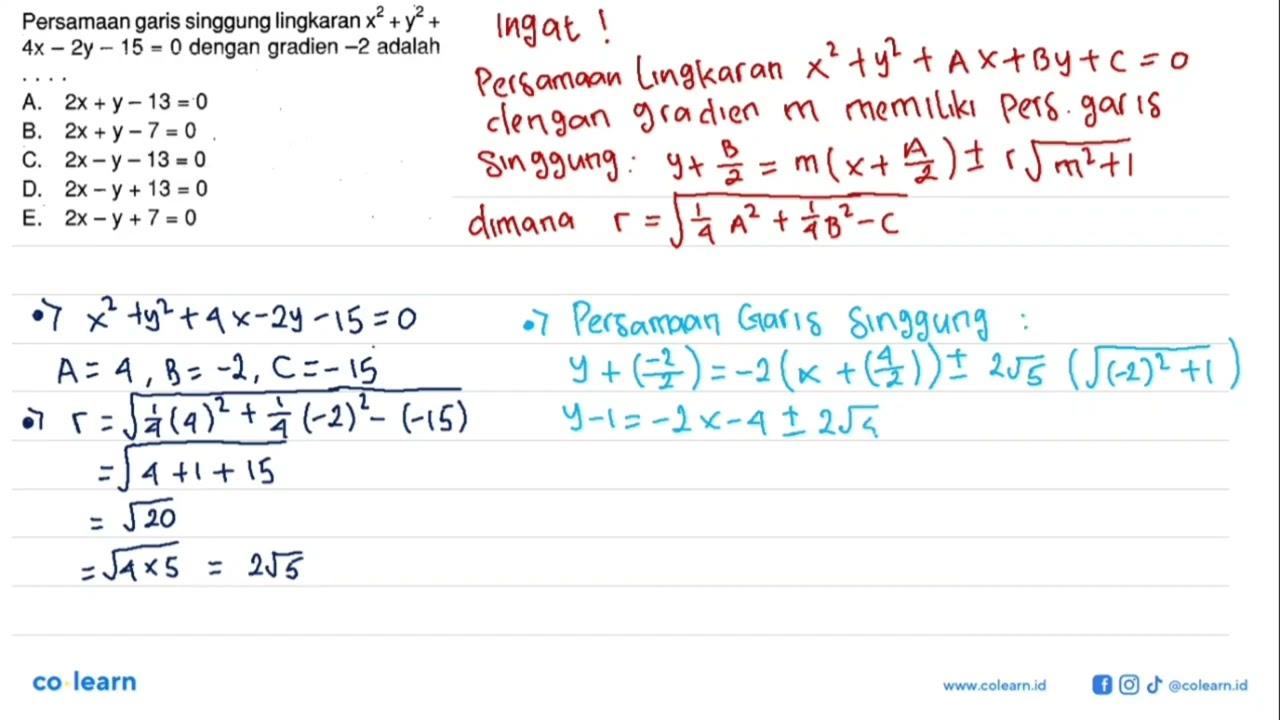 Persamaan garis singgung lingkaran x² + y² +
4x – 2y – 15 = 0 dengan gradien –2 adalah
. . . .
A. 2x + y – 13 = 0
B. 2x + y – 7 = 0
C. 2x – y – 13 = 0
D. 2x – y + 13 = 0
E. 2x – y + 7 = 0
Ingat !
Persamaan Lingkaran x² + y² + Ax + By + C = 0
dengan gradien m memiliki Pers. garis
Singgung : y + B/2 = m(x + A/2) ± r√(m² + 1)
dimana r = √(1/4 A² + 1/4 B² – C)
•> x² + y² + 4x – 2y – 15 = 0
A = 4, B = –2, C = –15
•> r = √(1/4 (4)² + 1/4 (–2)² – (–15))
= √(4 + 1 + 15)
= √20
= √(4 × 5) = 2√5
•> Persamaan Garis Singgung :
y + (–2/2) = –2(x + (4/2)) ± 2√5 (√((–2)² + 1))
y – 1 = –2x – 4 ± 2√
co learn
www.colearn.id
@colearn.id